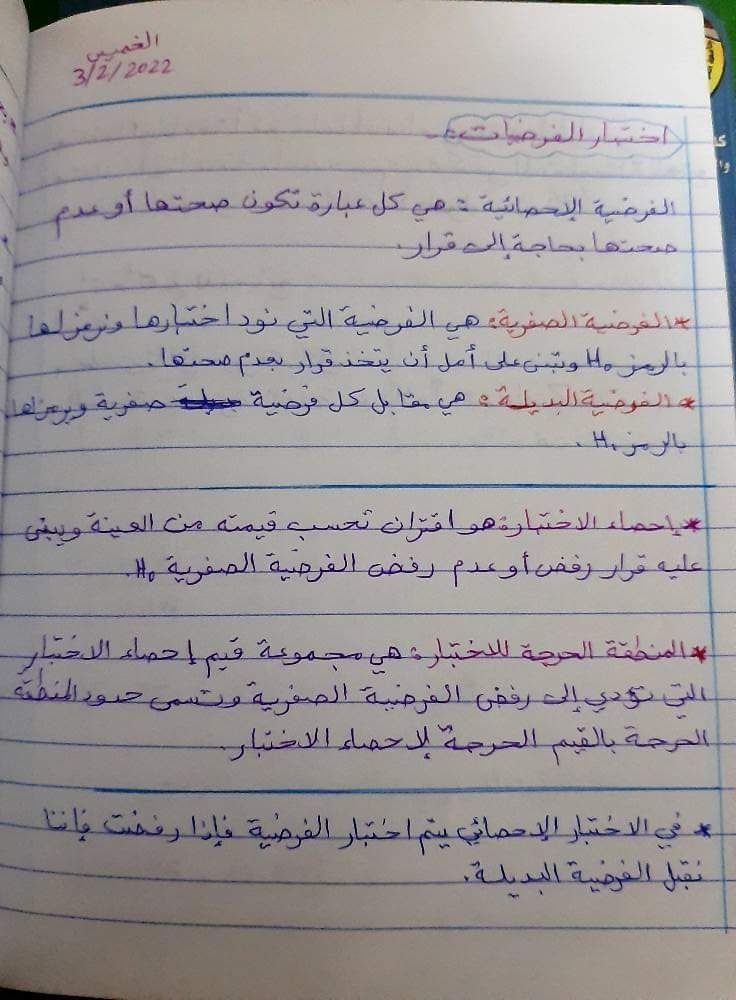 الخميس
3/2/2022
اختبار الفرضيات :-
الفرضية الإحصائية : هي كل عبارة تكون صحتها أو عدم
صحتها بحاجة إلى قرار.
* الفرضية الصفرية: هي الفرضية التي نود اختبارها ونرمز لها
بالرمز H₀ وتبنى على أمل أن يتخذ قرار بعدم صحتها.
* الفرضية البديلة : هي مقابل كل فرضية صفرية ويرمز لها
بالرمز H₁ .
* إحصاء الاختبار: هو اقتران تحسب قيمته من العينة ويبنى
عليه قرار رفض أو عدم رفض الفرضية الصفرية H₀.
* المنطقة الحرجة للاختبار: هي مجموعة قيم إحصاء الاختبار
التي تؤدي إلى رفض الفرضية الصفرية وتسمى حدود المنطقة
الحرجة بالقيم الحرجة لإحصاء الاختبار.
* في الاختبار الإحصائي يتم اختبار الفرضية فإذا رفضت فإننا
نقبل الفرضية البديلة.